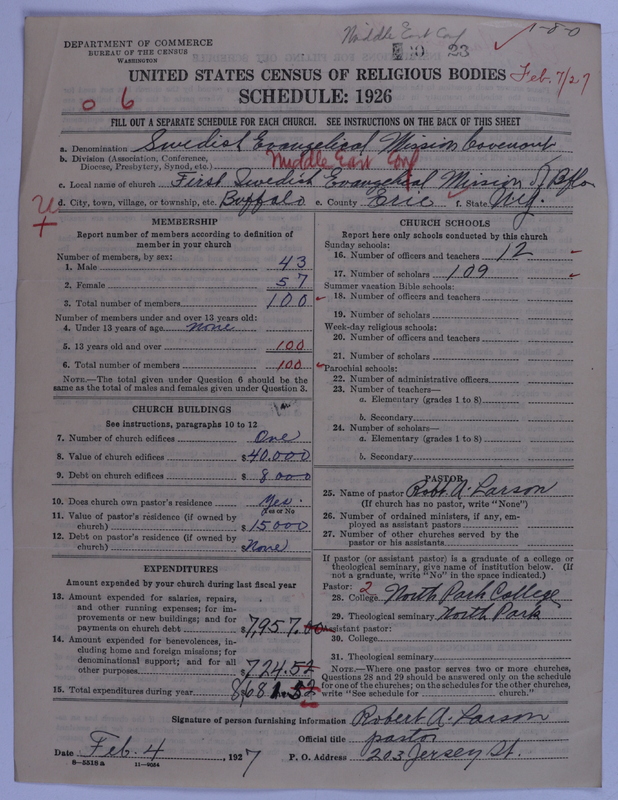 Middle East Conf
1-8-0
DEPARTMENT OF COMMERCE
BUREAU OF THE CENSUS
WASHINGTON
10 23
UNITED STATES CENSUS OF RELIGIOUS BODIES
Feb. 7/27
SCHEDULE: 1926
0 6
FILL OUT A SEPARATE SCHEDULE FOR EACH CHURCH. SEE INSTRUCTIONS ON THE BACK OF THIS SHEET
a. Denomination Swedish Evangelical Mission Covenant
b. Division (Association, Conference, Diocese, Presbytery, Synod, etc.) Middle East Conf
c. Local name of church First Swedish Evangelical Mission of Bflo
d. City, town, village, or township, etc. Buffalo e. County Erie f. State N.Y.
MEMBERSHIP
Report number of members according to definition of member in your church
Number of members, by sex:
1. Male 43
2. Female 57
3. Total number of members 100
Number of members under and over 13 years old:
4. Under 13 years of age none
5. 13 years old and over 100
6. Total number of members 100
NOTE.—The total given under Question 6 should be the same as the total of males and females given under Question 3.
CHURCH BUILDINGS
See instructions, paragraphs 10 to 12
7. Number of church edifices One
8. Value of church edifices $40.000
9. Debt on church edifices $8000
10. Does church own pastor's residence Yes.
(Yes or No)
11. Value of pastor's residence (if owned by church) $15000
12. Debt on pastor's residence (if owned by church) $None
EXPENDITURES
Amount expended by your church during last fiscal year
13. Amount expended for salaries, repairs, and other running expenses; for improvements or new buildings; and for payments on church debt $7,957.00
14. Amount expended for benevolences, including home and foreign missions; for denominational support; and for all other purposes 724.52
15. Total expenditures during year 8,681.52
CHURCH SCHOOLS
Report here only schools conducted by this church
Sunday schools:
16. Number of officers and teachers 12
17. Number of scholars 109
Summer vacation Bible schools:
18. Number of officers and teachers
19. Number of scholars
Week-day religious schools:
20. Number of officers and teachers
21. Number of scholars
Parochial schools:
22. Number of administrative officers
23. Number of teachers—
a. Elementary (grades 1 to 8)
b. Secondary
24. Number of scholars—
a. Elementary (grades 1 to 8)
b. Secondary
PASTOR
25. Name of pastor Robt A. Larson
(If church has no pastor, write "None")
26. Number of ordained ministers, if any, employed as assistant pastors
27. Number of other churches served by the pastor or his assistants
If pastor (or assistant pastor) is a graduate of a college or theological seminary, give name of institution below. (If not a graduate, write "No" in the space indicated.)
Pastor: 2
28. College North Park College
29. Theological seminary North Park
Assistant pastor:
30. College
31. Theological seminary
NOTE.—Where one pastor serves two or more churches, Questions 28 and 29 should be answered only on the schedule for one of the churches; on the schedules for the other churches, write "See schedule for ______ church."
Signature of person furnishing information Robert A. Larson
Official title pastor
Date Feb. 4, 1927 P. O. Address 203 Jersey St.
8—5518 a 11—4064